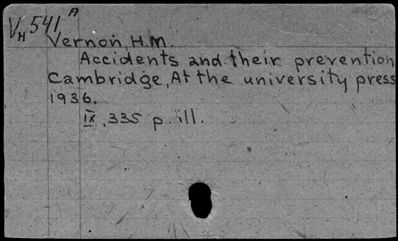 VH 541 A
Vernon, H.M.
Accidents and their prevention
Cambridge, At the university press
1936.
IX, 335 p. ill.